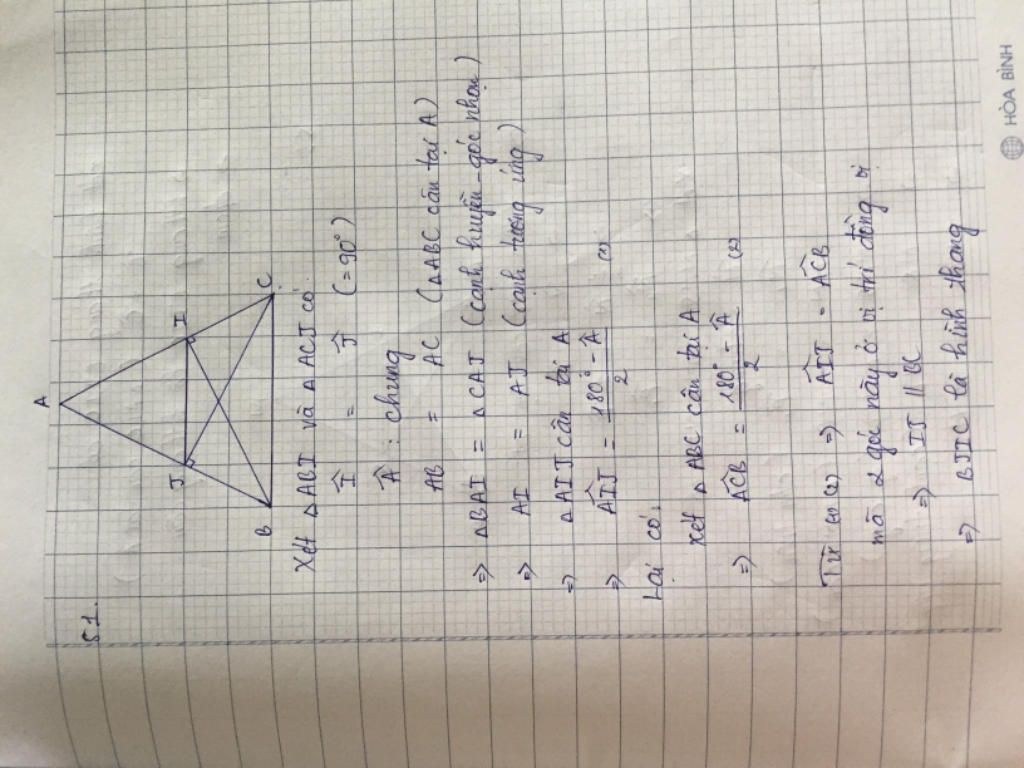 51.
A
J I
B C
Xét ΔABI và ΔACJ có:
Î = Ĵ (= 90°)
Â : chung
AB = AC (ΔABC cân tại A)
=> ΔBAI = ΔCAJ (cạnh huyền - góc nhọn)
=> AI = AJ (cạnh tương ứng)
=> ΔAIJ cân tại A
=> AIJ = 180° - Â / 2 (1)
Lại có:
Xét ΔABC cân tại A
=> ACB = 180° - Â / 2 (2)
Từ (1) (2) => AIJ = ACB
mà 2 góc này ở vị trí đồng vị
=> IJ // BC
=> BJIC là hình thang
HÒA BÌNH